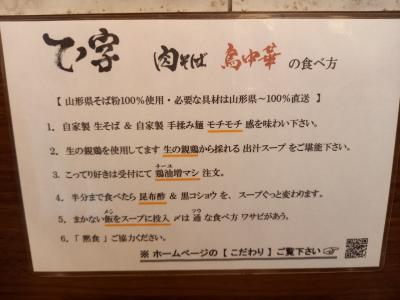 て字 肉そば 鳥中華 の食べ方
【 山形県そば粉100%使用・必要な具材は山形県〜100%直送 】
1. 自家製 生そば & 自家製 手揉み麺 モチモチ 感を味わい下さい。
2. 生の親鶏を使用してます 生の親鶏から採れる 出汁スープ をご堪能下さい。
3. こってり好きは受付にて 鶏油増マシ 注文。
チーユ
4. 半分まで食べたら 昆布酢 & 黒コショウ を、 スープぐっと変わります。
5. まかない飯をスープに投入 〆は 通 な食べ方 ワサビがあう。
メシ ツウ
6. 「 黙食 」ご協力ください。
※ ホームページの【 こだわり 】ご覧下さい ☞